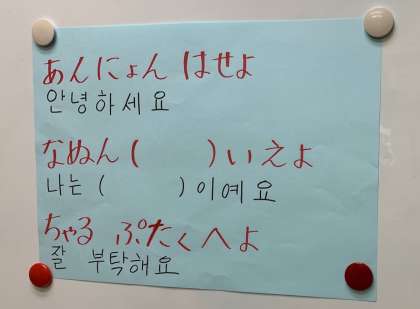 あんにょん はせよ
안녕하세요
なぬん (　　) いえよ
나는 (　　) 이예요
ちゃる ぷたくへよ
잘 부탁해요